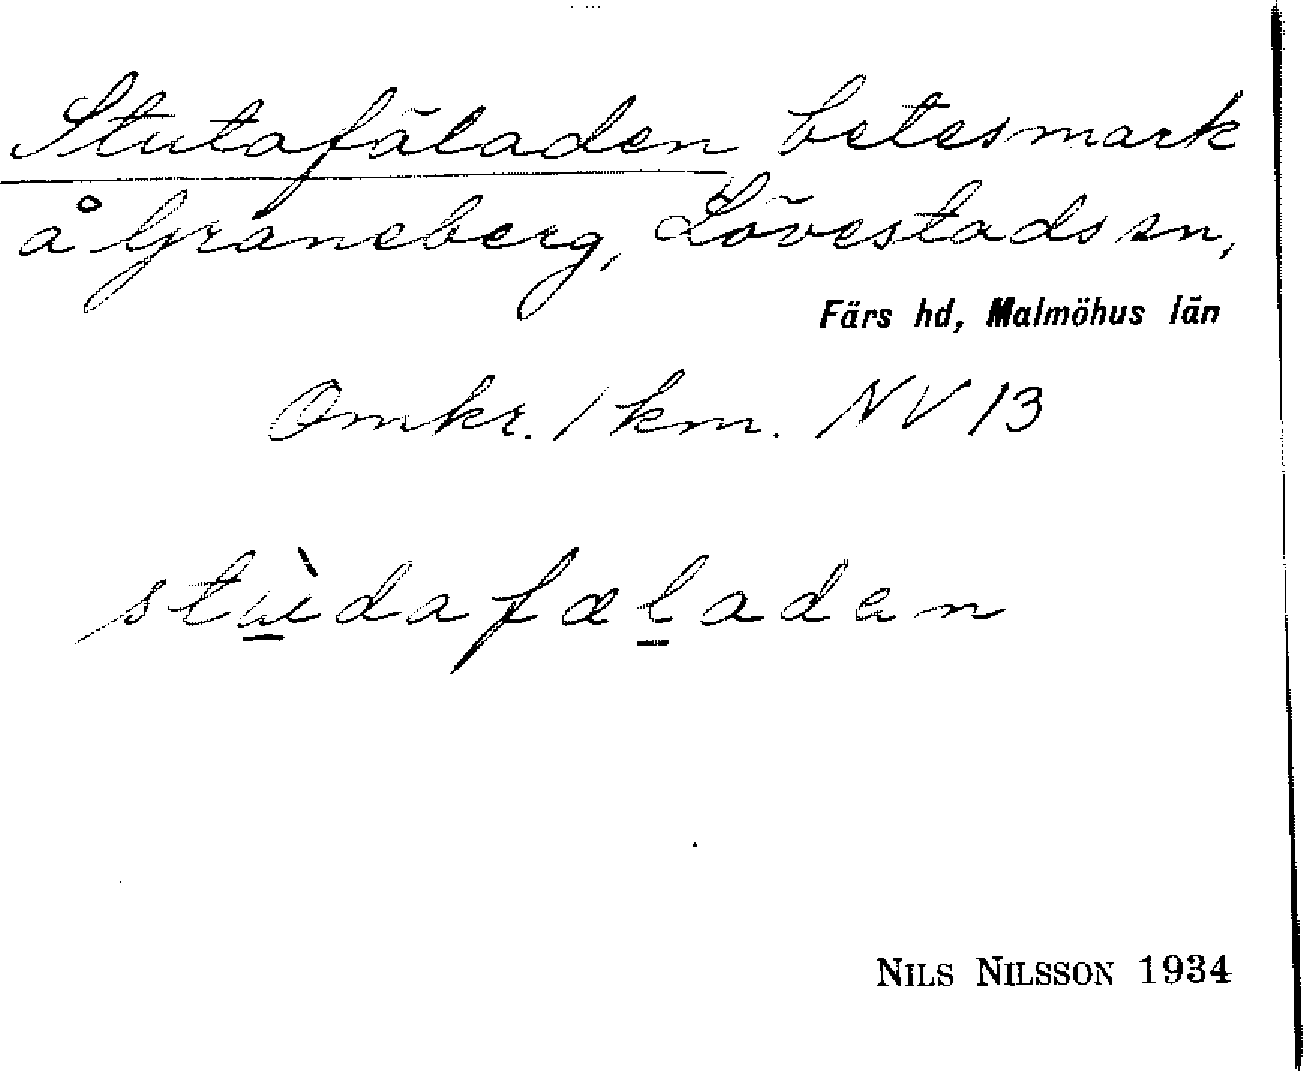 Stutafäladen betesmark
å Graneberg, Lövestads sn,
Färs hd, Malmöhus län
Omkr. 1 km. NV 13
stù̲dafæl̲aden
NILS NILSSON 1934